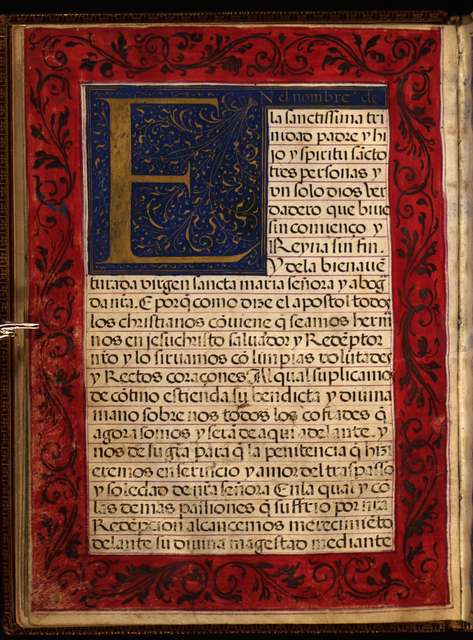 EN el nombre de
la sanctissima tri
nidad padre y hi
jo y spiritu sãcto
tres personas y
vn solo dios ver
dadero que biue
sin comienço y
Reyna sin fin.
Y de la bienauẽ
turada virgen sancta maria señora y abog
da nr̃a. E porq̃ como dize el apostol todos
los christianos cõuiene q̃ seamos herm̃
nos en jesuchristo saluador y Redẽptor
nr̃o y lo siruamos cõ limpias volũtades
y Rectos coraçones Al qual suplicamos
de cõtino estienda su bendicta y diuina
mano sobre nos todos los cofrades q̃
agora somos y serã de aqui adelante. y
nos de su gr̃a para q̃ la penitencia q̃ hizi
eremos en seruicio y amor del traspasso
y soledad de nr̃a señora En la qual y cõ
las demas passiones q̃ suffrio por nr̃a
Redẽpcion alcancemos merecimiẽto
delante su diuina magestad mediante